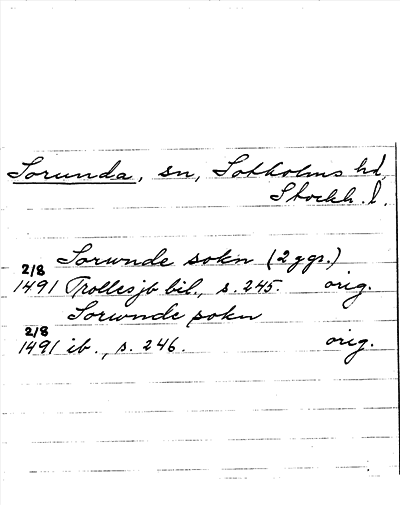 Sorunda, sn, Sotholms hd,
Stockh. l.
Sorwnde sokn (2 ggr.)
2/8
1491 Trollesjb bil., s. 245. orig.
Sorwnde sokn
2/8
1491 ib., s. 246. orig.